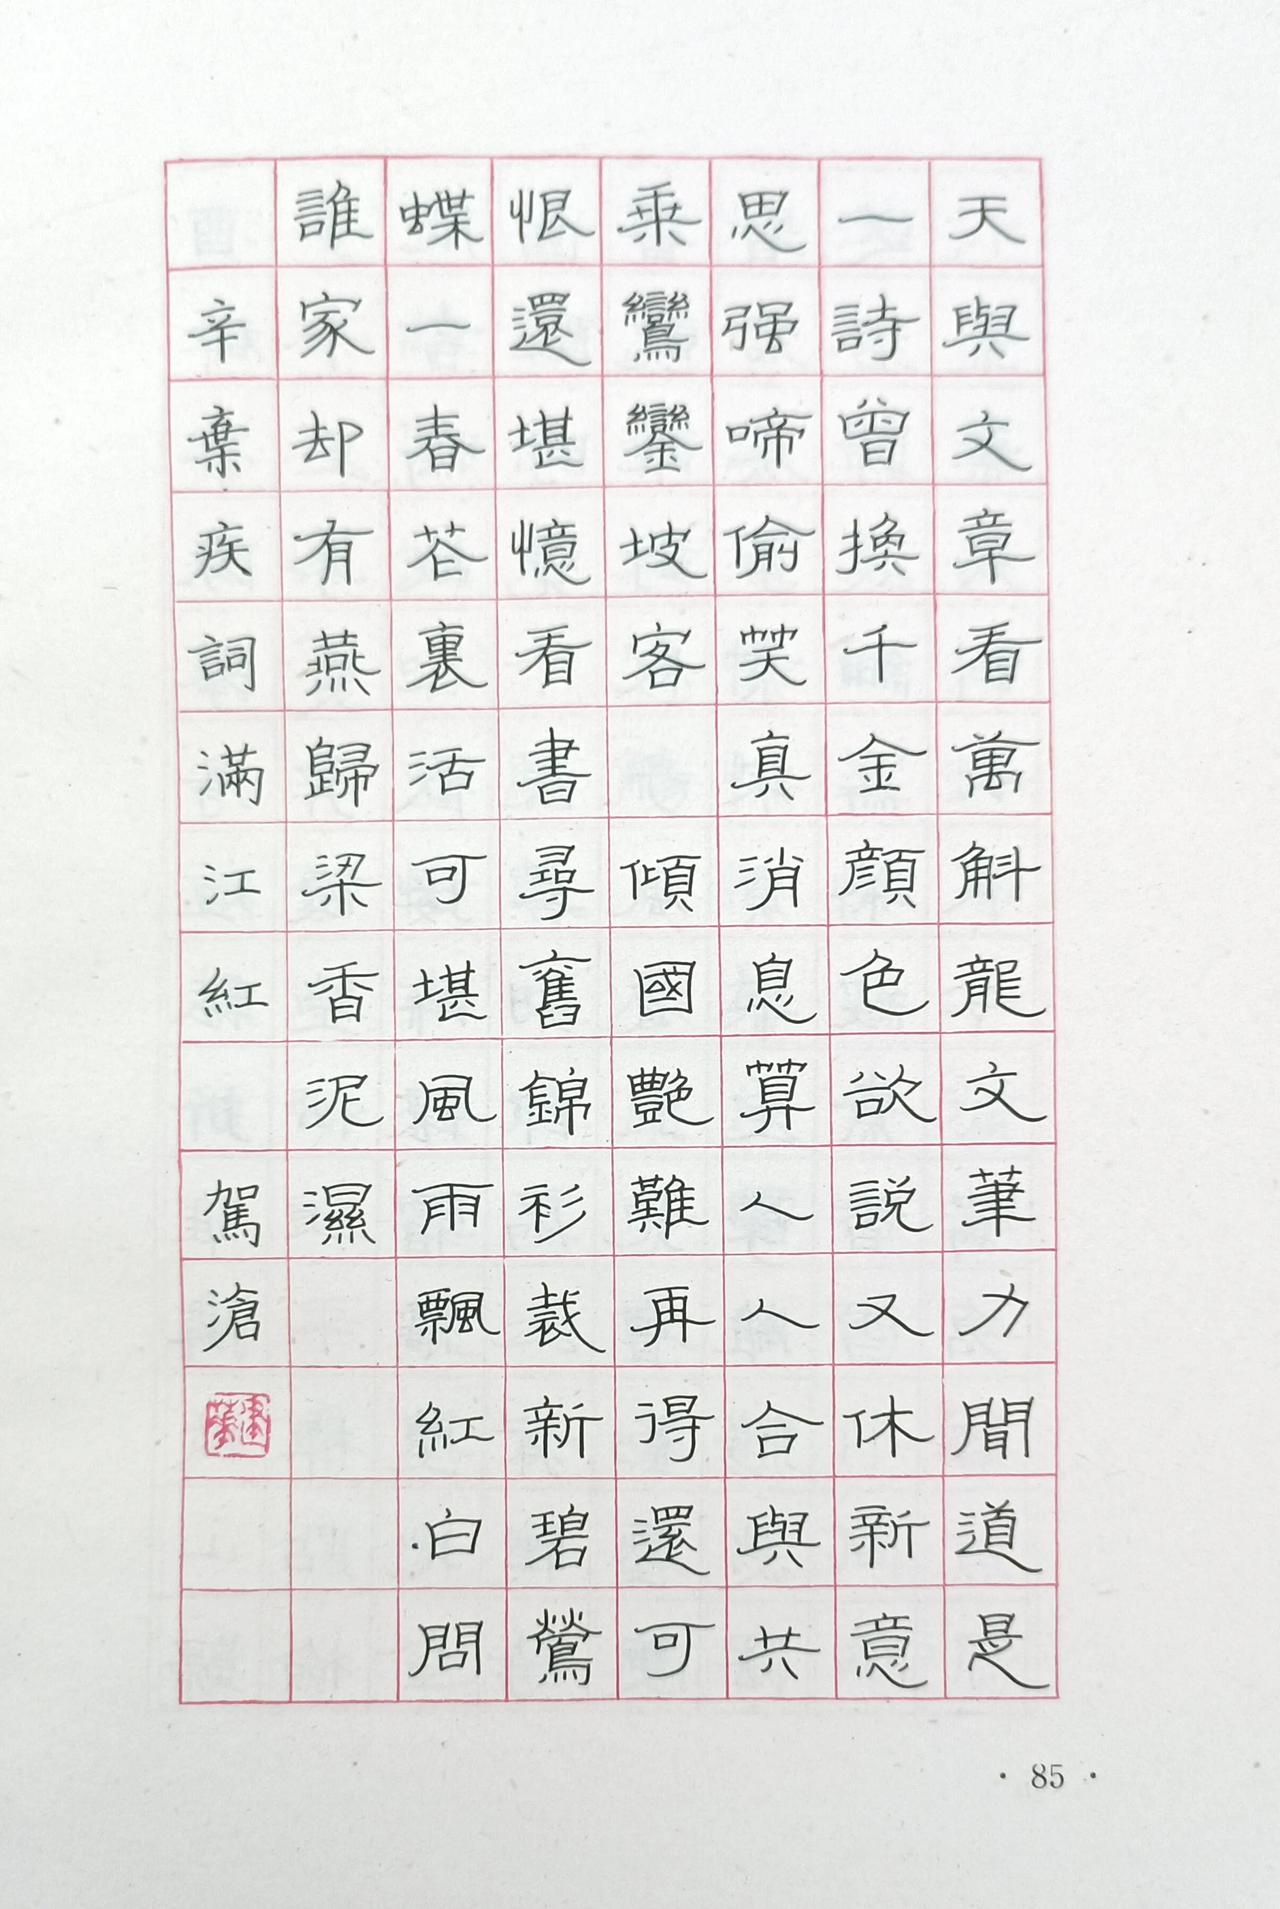 天與文章看萬斛龍文筆力聞道是
一詩曾換千金顔色欲説又休新意
思强啼偷笑真消息算人人合與共
乘鸞鑾坡客 傾國艷難再得還可
恨還堪憶看書尋舊錦衫裁新碧鶯
蝶一春花裏活可堪風雨飄紅白問
誰家却有燕歸梁香泥濕
辛棄疾詞滿江紅 駕滄
· 85 ·